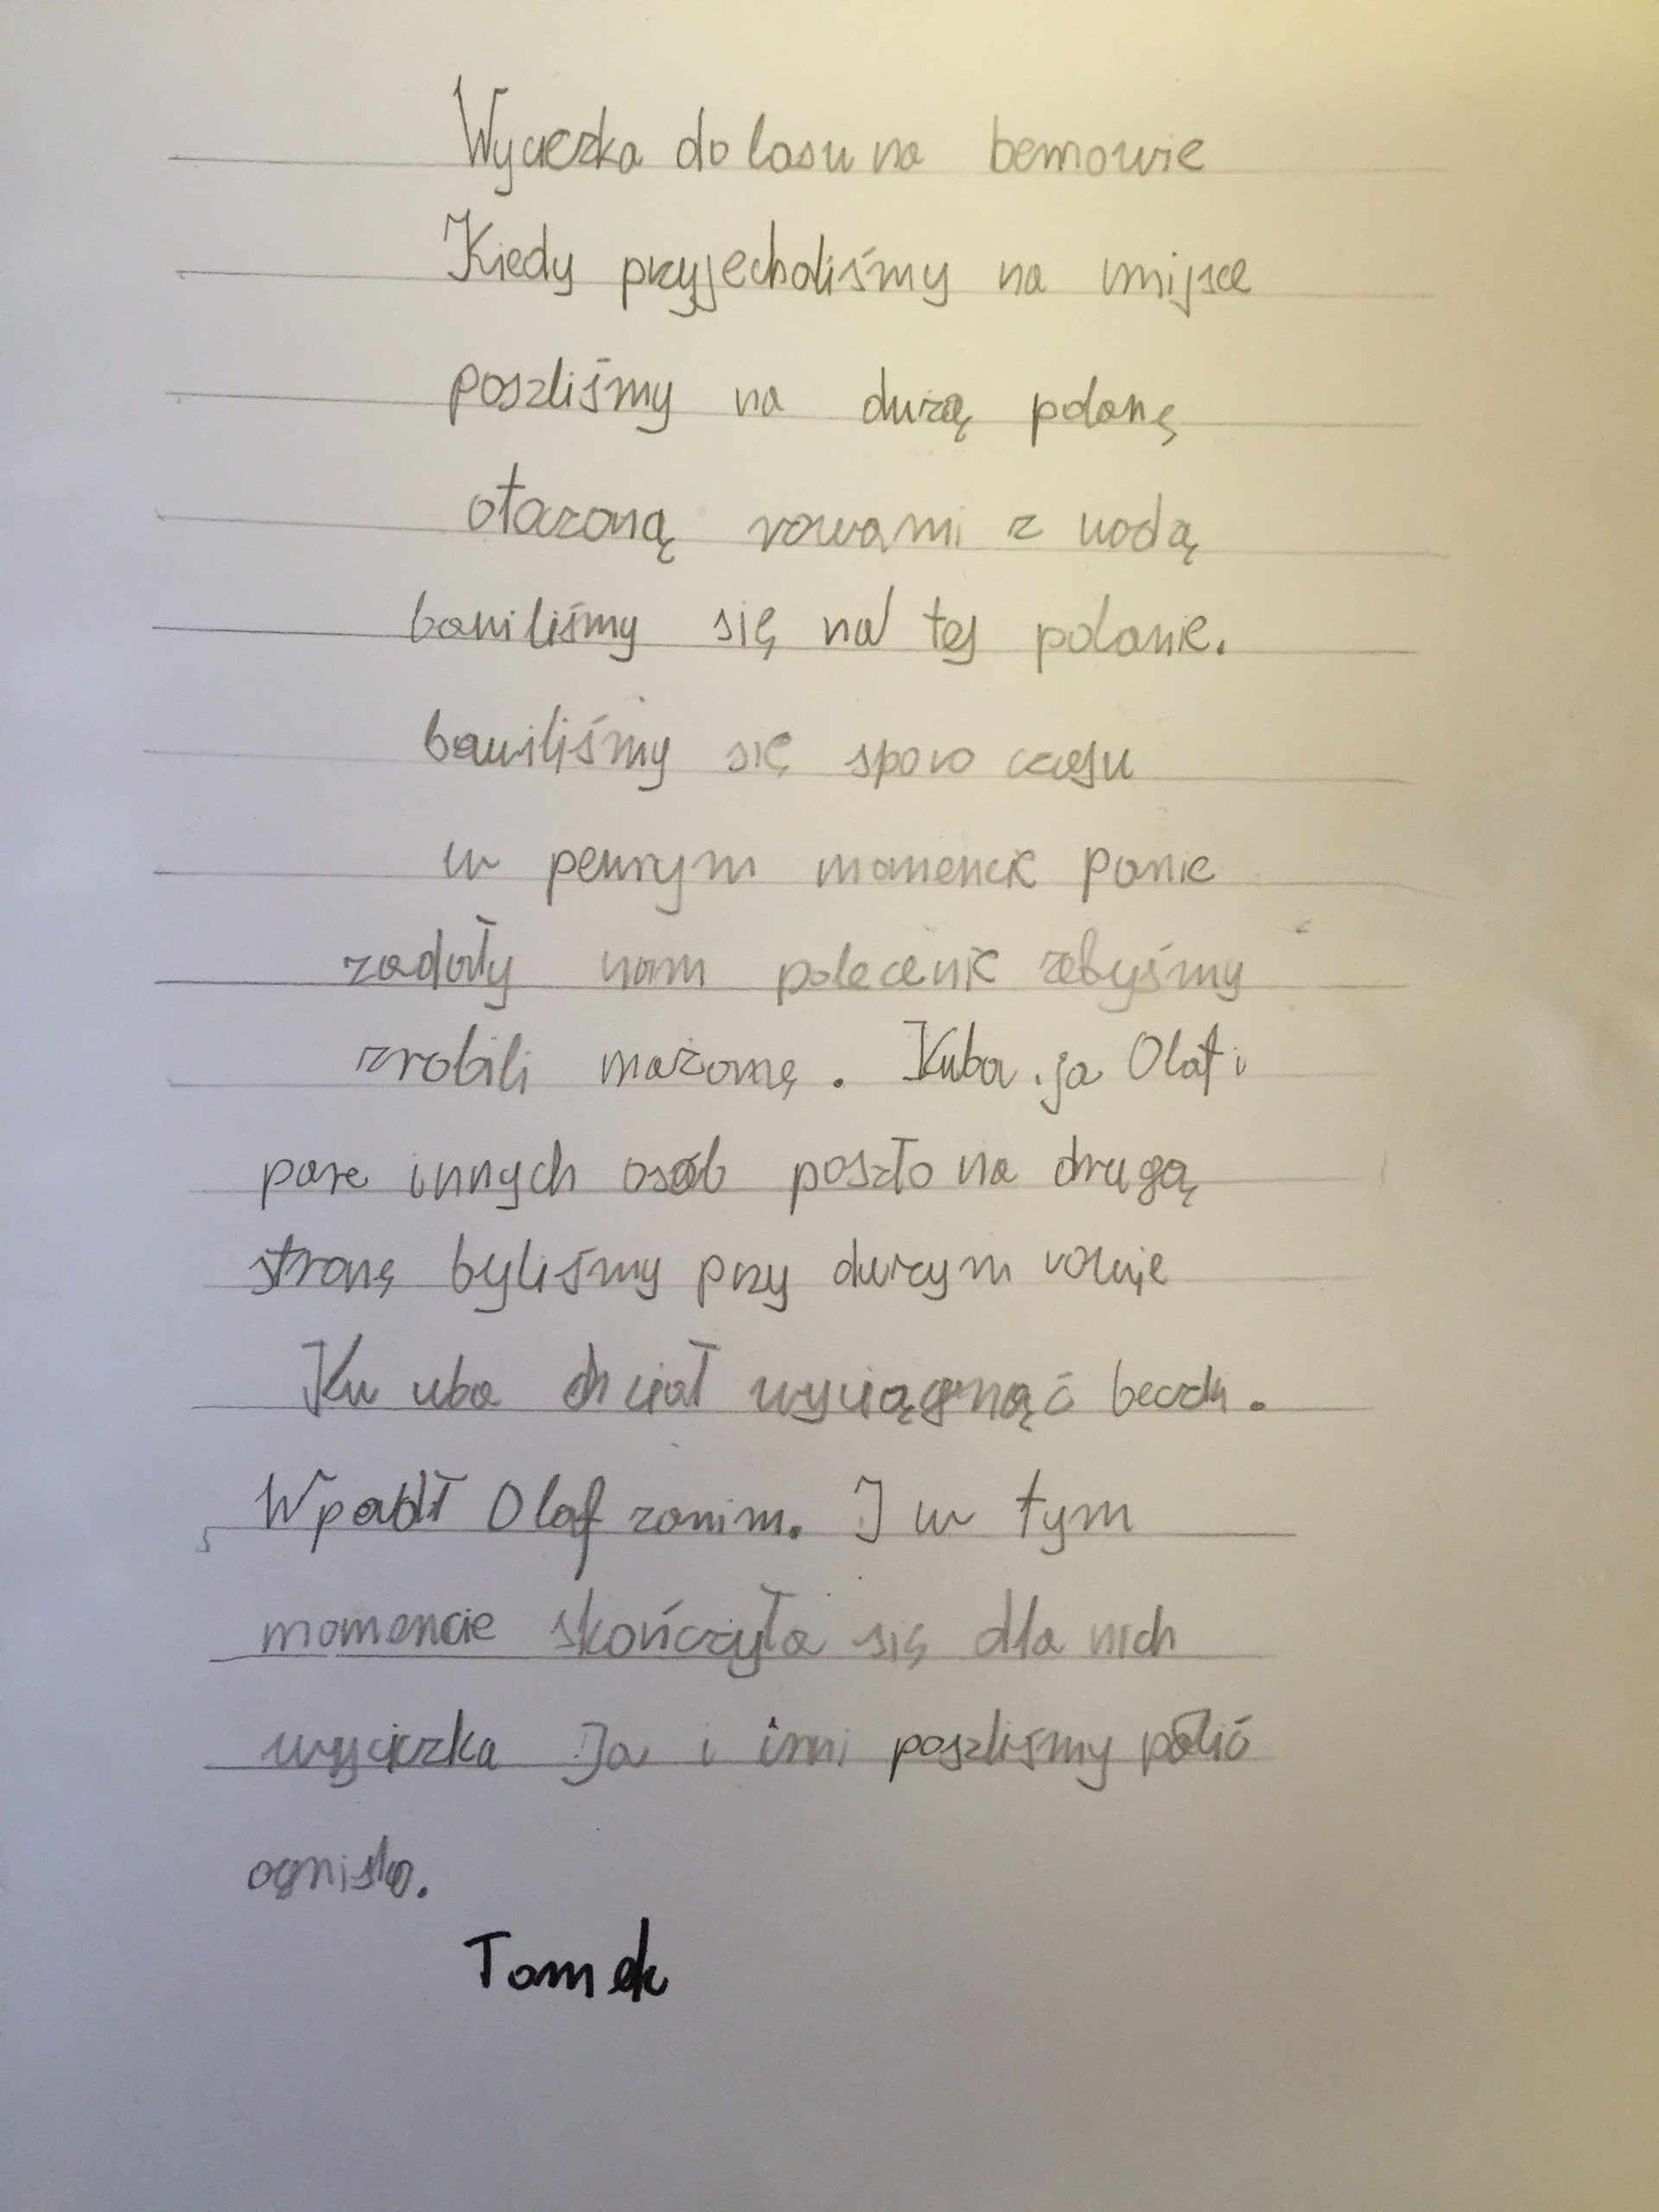 Wycieczka do lasu na bemowie
Kiedy przyjechaliśmy na mijsce
poszliśmy na dużą polanę
otaczoną rowami z wodą
bawiliśmy się na tej polanie.
bawiliśmy się sporo czasu
w pewnym momencie Panie
zadały nam polecenie żebyśmy
zrobili marzannę. Kuba ja Olaf i
pare innych osób poszło na drugą
stronę byliśmy przy dużym rowie
Ku uba chciał wyciągnąć
Wpadł Olaf zanim. I w tym
momencie skończyła się dla nich
wycieczka Ja i inni poszliśmy palić
ognisko.
Tomek